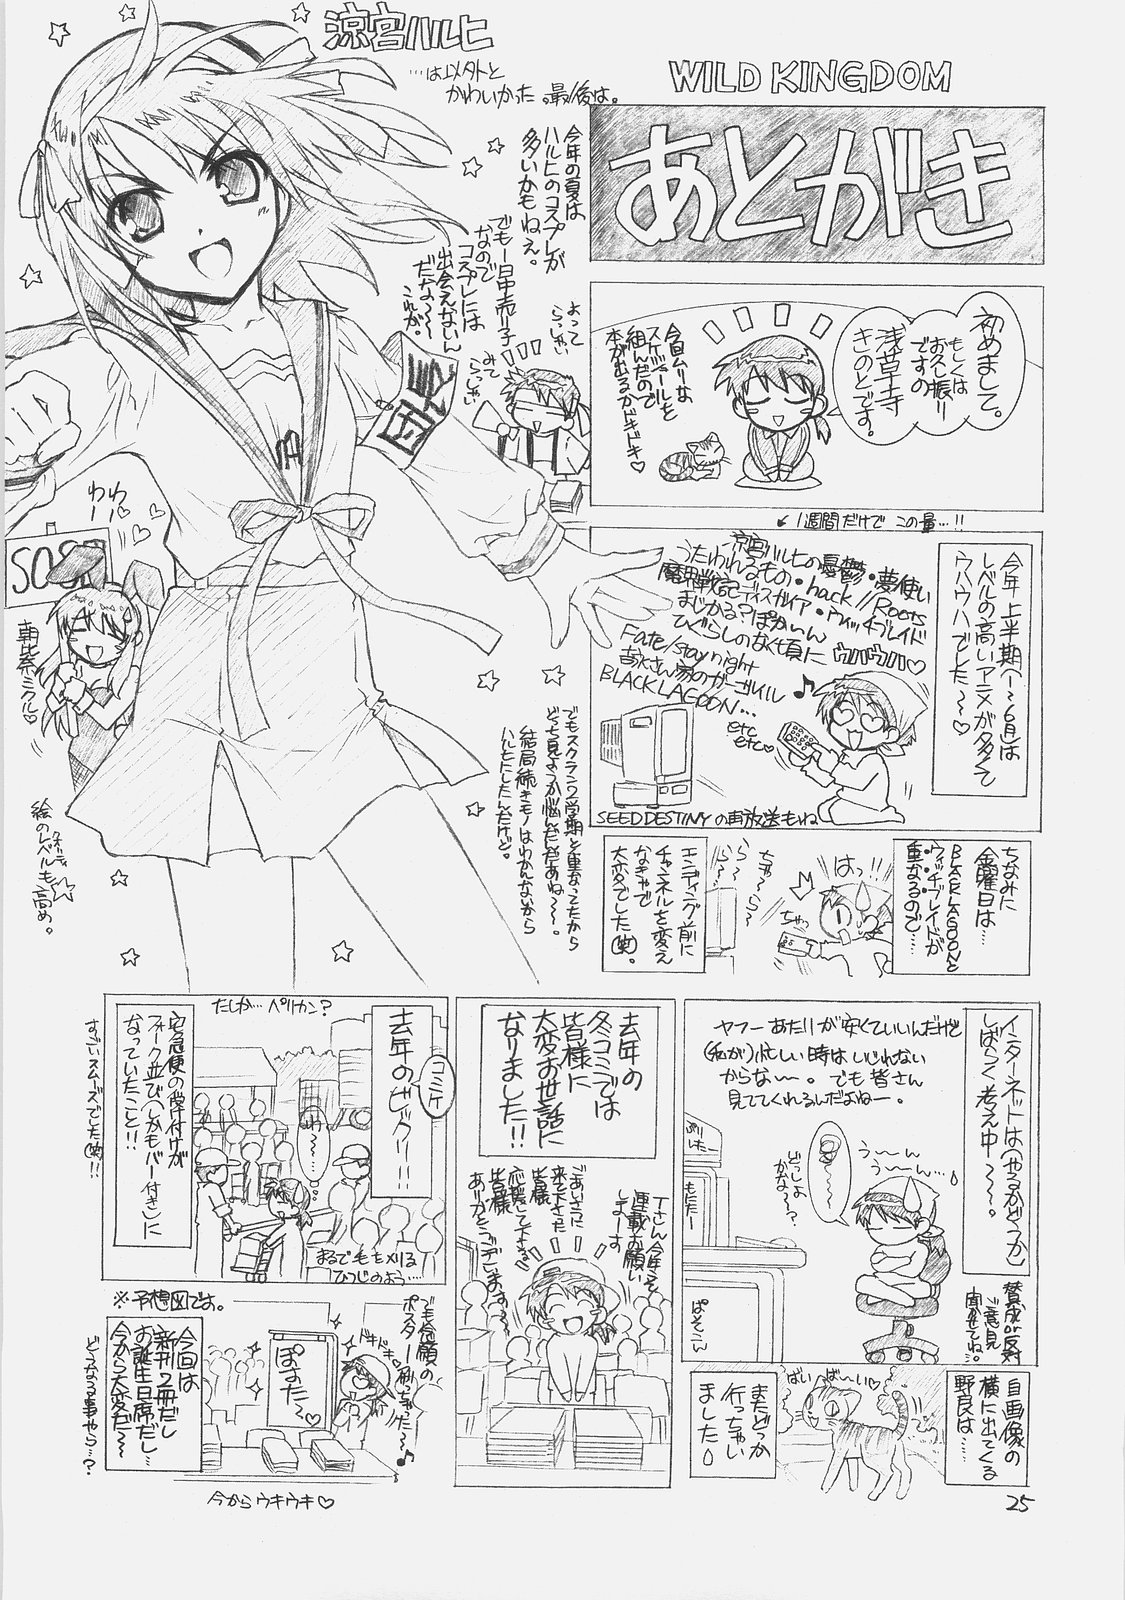 WILD KINGDOM
あとがき
涼宮ハルヒ
…は以外と
かわいかった。最後は。
今年の夏は
ハルヒのコスプレが
多いかもねえ。
でも一日中売り子
なので
コスプレには
出会えないん
だな〜〜
これが。
よってらっしゃい
みてらっしゃい
団長
わー
わー
SOS
朝比奈ミクル♡
絵のレベルも高め。
クオリティ
初めまして。
もしくは
お久し振り
ですの
浅草寺
きのとです。
今回ムリな
スケジュールを
組んだので
本が出るかドキドキ♡
↙1週間だけで この量…!!
今年上半期(1〜6月)は
レベルの高いアニメが多くて
ウハウハでした〜♡
涼宮ハルヒの憂鬱・夢使い
うたわれるもの・.hack//Roots
魔界戦記ディスガイア・ウィッチブレイド
まじかる?ぽかぁん
ひぐらしのなく頃に
ウハウハ♡
Fate/stay night
吉永さん家のガーゴイル
BLACK LAGOON…
etc
etc
SEED DESTINYの再放送もね
でもスクラン2学期と重なってたから
どっち見ようか悩んだんだあね〜〜。
結局続きモノはわかんないから
ハルヒにしたんだけど。
ちなみに
金曜日は…
BLACK LAGOONと
ウィッチブレイドが
重なるので…
はっ!!
ちゃっ
ちゃ〜ら
ら〜ら〜
エンディング前に
チャンネルを変え
なきゃで
大変でした(笑)。
インターネットは(やるかどうか)
しばらく考え中〜〜。
ヤフーあたりが安くていいんだけど
(私が)忙しい時はいじれない
からな〜。でも皆さん
見ててくれるんだよねー。
う〜ん
う〜ん…
どっしよ
かな〜?
もにたー
ぱそこん
賛成or反対
ご意見
聞かせてね…
自画像の
横に出てくる
野良は…
ばい
ば〜い♡
またどっか
行っちゃい
ました
去年の
冬コミでは
皆様に
大変お世話に
なりました!!
Tさん今年こそ
連載お願い
しまーす
ごあいさつに
来て下さった
皆様
応援して下さる
皆様
ありがとうございます〜
コミケ
去年のビックリ!!
たしか…ペリカン?
わ〜…
宅急便の受付けが
フォーク並び(しかもバー付き)に
なっていたこと!!
すごいスムーズでした(笑)!!
まるで毛をメリる
ひつじのよう…
※予想図です。
今回は
新刊2冊だし
お誕生日席だし…
今から大変だ〜
どうなる事やら…?
でも念願の
ポスター刷っちゃった〜♪
ドキドキ
ぽすた〜
今からウキウキ♡
25